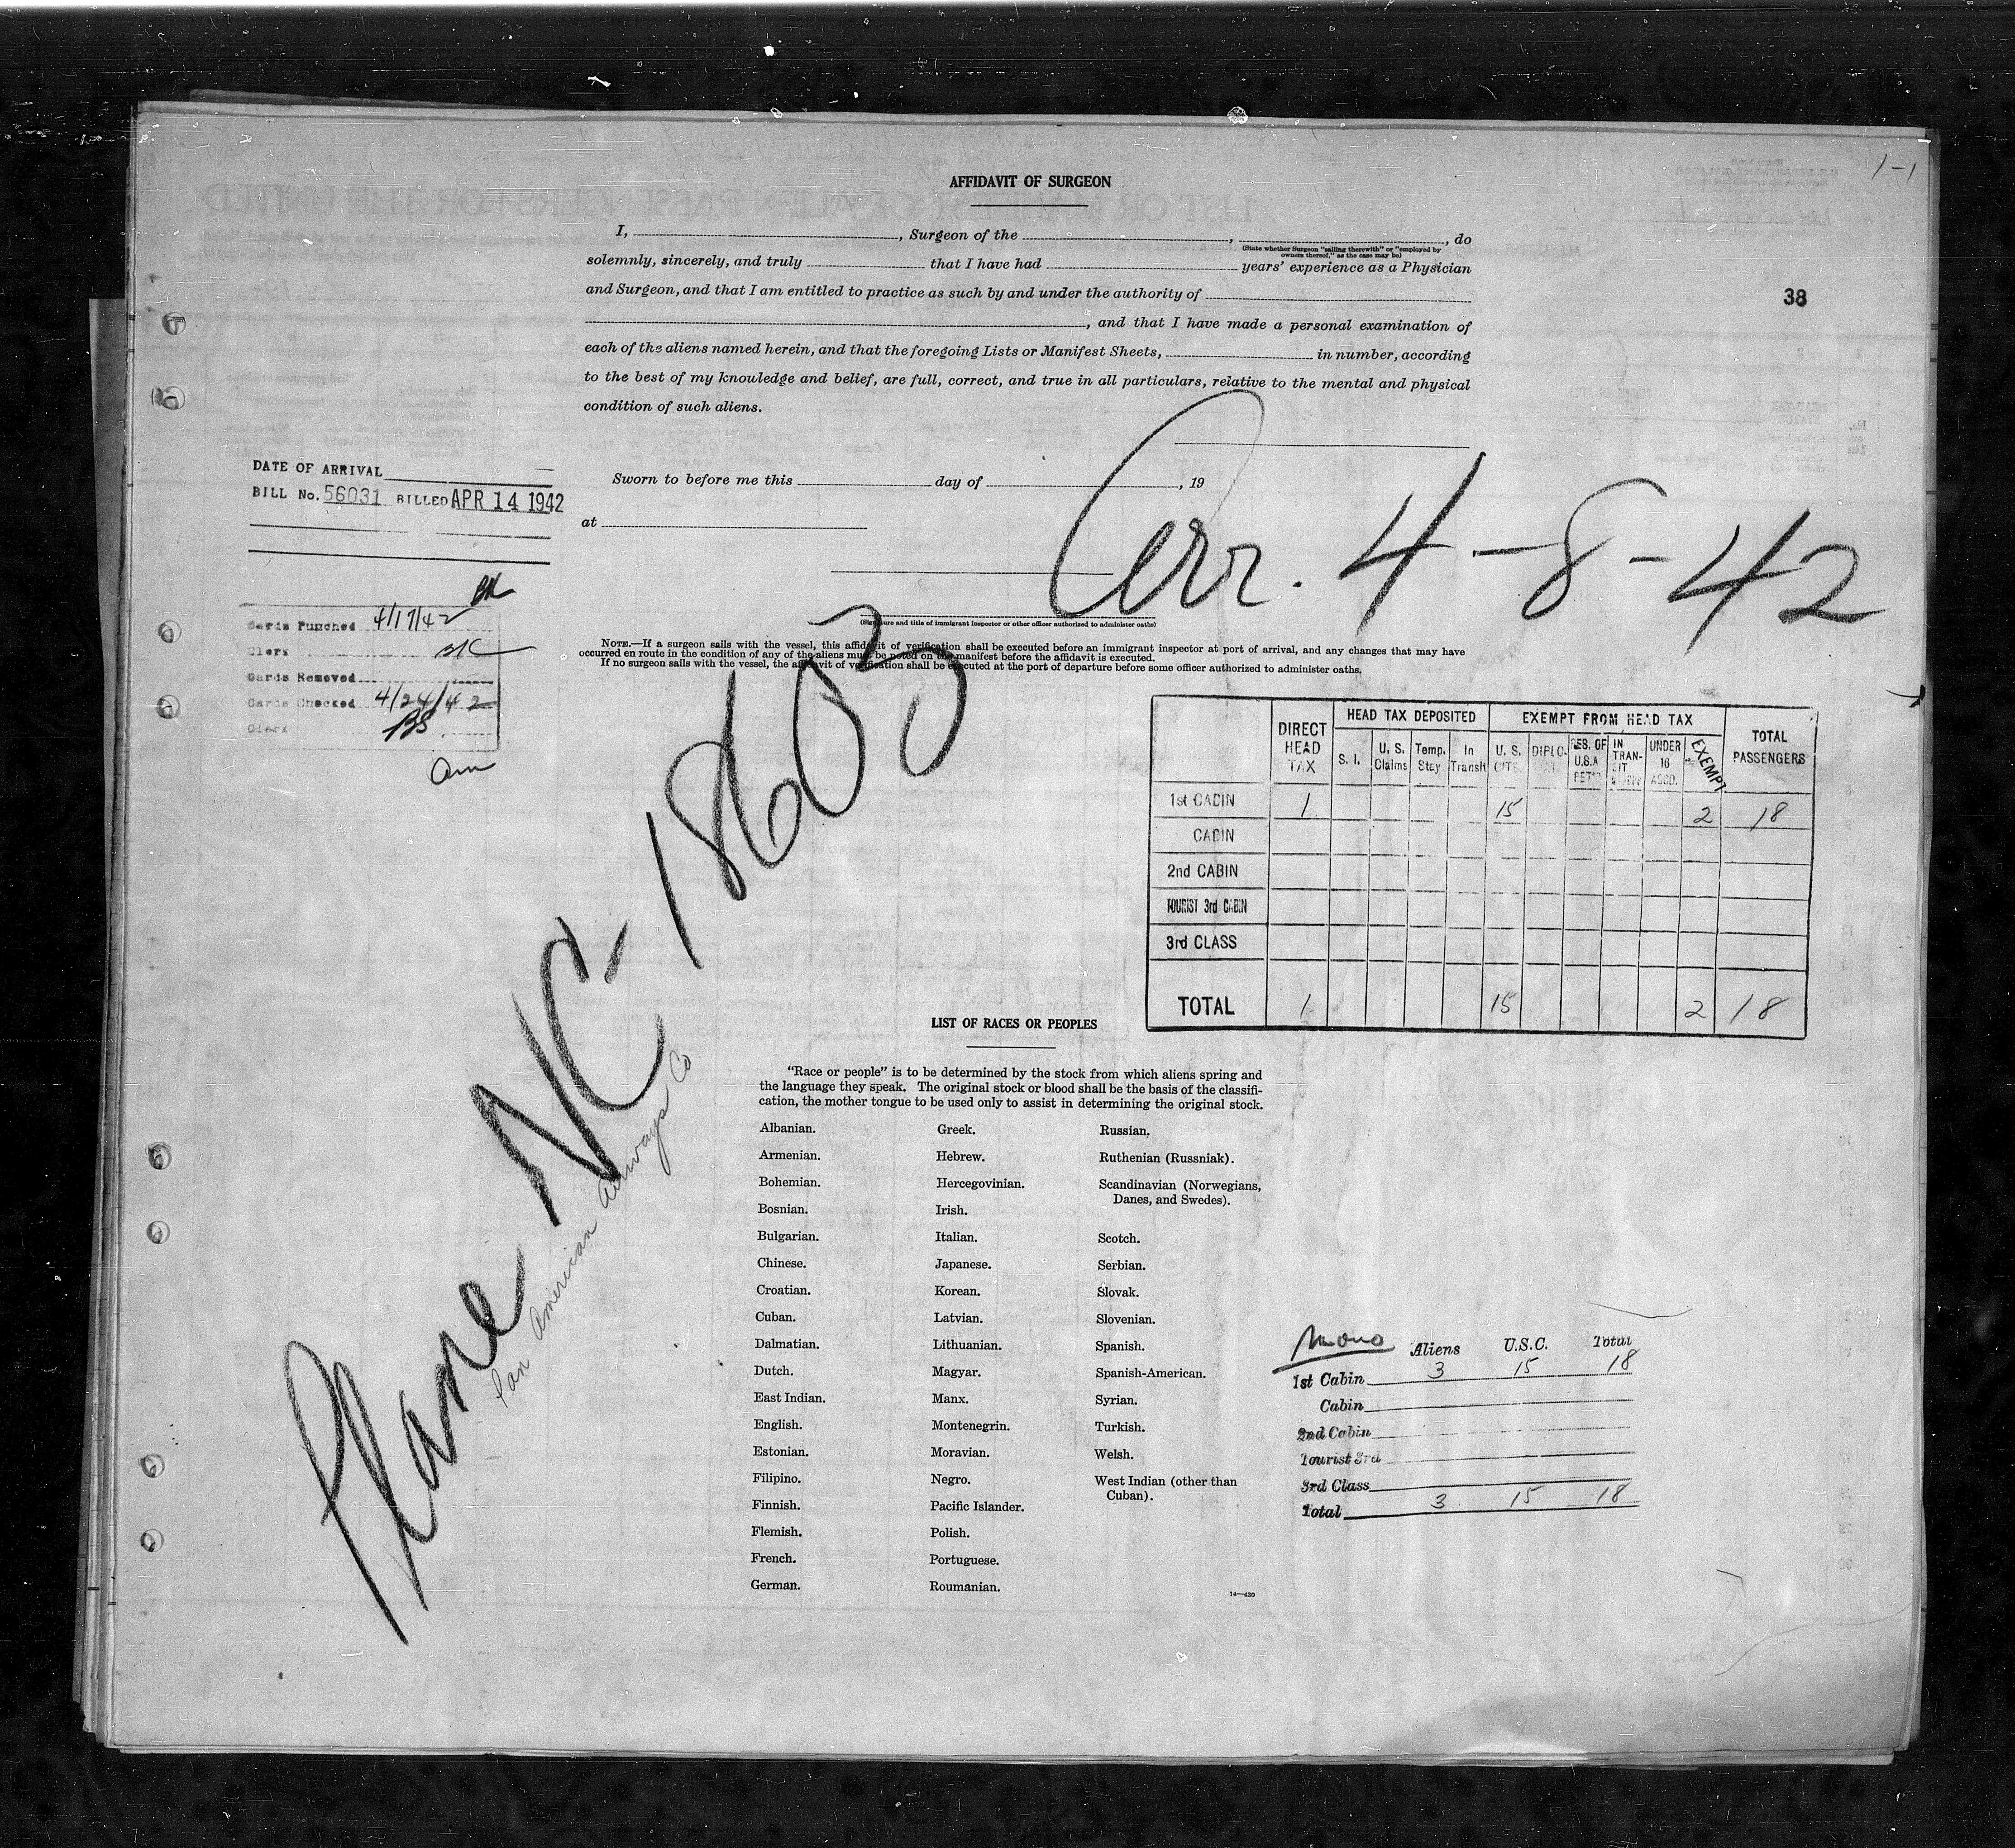 1-1
AFFIDAVIT OF SURGEON
I, , Surgeon of the , , do
(State whether Surgeon "sailing therewith" or "employed by
owners thereof," as the case may be)
solemnly, sincerely, and truly that I have had years' experience as a Physician
and Surgeon, and that I am entitled to practice as such by and under the authority of
, and that I have made a personal examination of
each of the aliens named herein, and that the foregoing Lists or Manifest Sheets, in number, according
to the best of my knowledge and belief, are full, correct, and true in all particulars, relative to the mental and physical
condition of such aliens.
38
DATE OF ARRIVAL
BILL No. 56031 BILLED APR 14 1942
Sworn to before me this day of , 19
at
Arr. 4-8-42
(Signature and title of immigrant inspector or other officer authorized to administer oaths)
Cards Punched 4/17/42
Clerk
Cards Removed
Cards Checked 4/24/42
Clerk BS
NOTE.—If a surgeon sails with the vessel, this affidavit of verification shall be executed before an immigrant inspector at port of arrival, and any changes that may have
occurred en route in the condition of any of the aliens must be noted on the manifest before the affidavit is executed.
If no surgeon sails with the vessel, the affidavit of verification shall be executed at the port of departure before some officer authorized to administer oaths.
Plane NC-18603
Pan American Airways Co
DIRECT HEAD TAX HEAD TAX DEPOSITED EXEMPT FROM HEAD TAX TOTAL PASSENGERS
S. I. U. S. Claims Temp. Stay In Transit U. S. CITS. DIPLO- RES. OF U.S.A RET'D IN TRAN- SIT UNDER 16 ACCD. EXEMPT
1st CABIN 1 15 2 18
CABIN
2nd CABIN
TOURIST 3rd CABIN
3rd CLASS
TOTAL 1 15 2 18
LIST OF RACES OR PEOPLES
"Race or people" is to be determined by the stock from which aliens spring and
the language they speak. The original stock or blood shall be the basis of the classifi-
cation, the mother tongue to be used only to assist in determining the original stock.
Albanian.
Armenian.
Bohemian.
Bosnian.
Bulgarian.
Chinese.
Croatian.
Cuban.
Dalmatian.
Dutch.
East Indian.
English.
Estonian.
Filipino.
Finnish.
Flemish.
French.
German.
Greek.
Hebrew.
Hercegovinian.
Irish.
Italian.
Japanese.
Korean.
Latvian.
Lithuanian.
Magyar.
Manx.
Montenegrin.
Moravian.
Negro.
Pacific Islander.
Polish.
Portuguese.
Roumanian.
Russian.
Ruthenian (Russniak).
Scandinavian (Norwegians,
Danes, and Swedes).
Scotch.
Serbian.
Slovak.
Slovenian.
Spanish.
Spanish-American.
Syrian.
Turkish.
Welsh.
West Indian (other than
Cuban).
14—430
Aliens U.S.C. Total
1st Cabin 3 15 18
Cabin
2nd Cabin
Tourist 3rd
3rd Class
Total 3 15 18